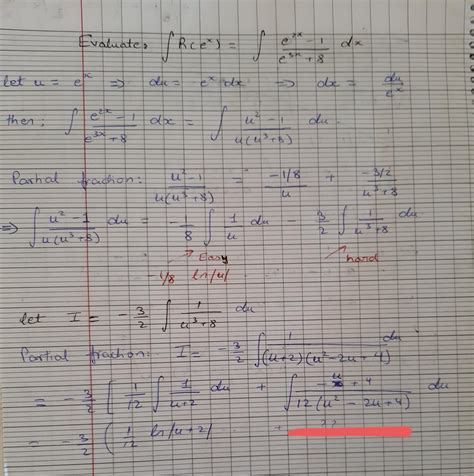 Evaluate, ∫ R(e^x) = ∫ (e^{2x} - 1)/(e^{3x} + 8) dx
let u = e^x ⇒ du = e^x dx ⇒ dx = du/e^x
then; ∫ (e^{2x} - 1)/(e^{3x} + 8) dx = ∫ (u^2 - 1)/(u(u^3 + 8)) du.
Partial fraction: (u^2 - 1)/(u(u^3 + 8)) = (-1/8)/u + (-3/2)/(u^3 + 8)
⇒ ∫ (u^2 - 1)/(u(u^3 + 8)) du = -1/8 ∫ 1/u du - 3/2 ∫ 1/(u^3 + 8) du
Easy hard
-1/8 ln|u|
let I = -3/2 ∫ 1/(u^3 + 8) du
Partial fraction: I = -3/2 ∫ 1/((u+2)(u^2 - 2u + 4)) du
= -3/2 [ 1/12 ∫ 1/(u+2) du + ∫ (-u + 4)/(12(u^2 - 2u + 4)) du
= -3/2 ( 1/12 ln|u+2| + ??